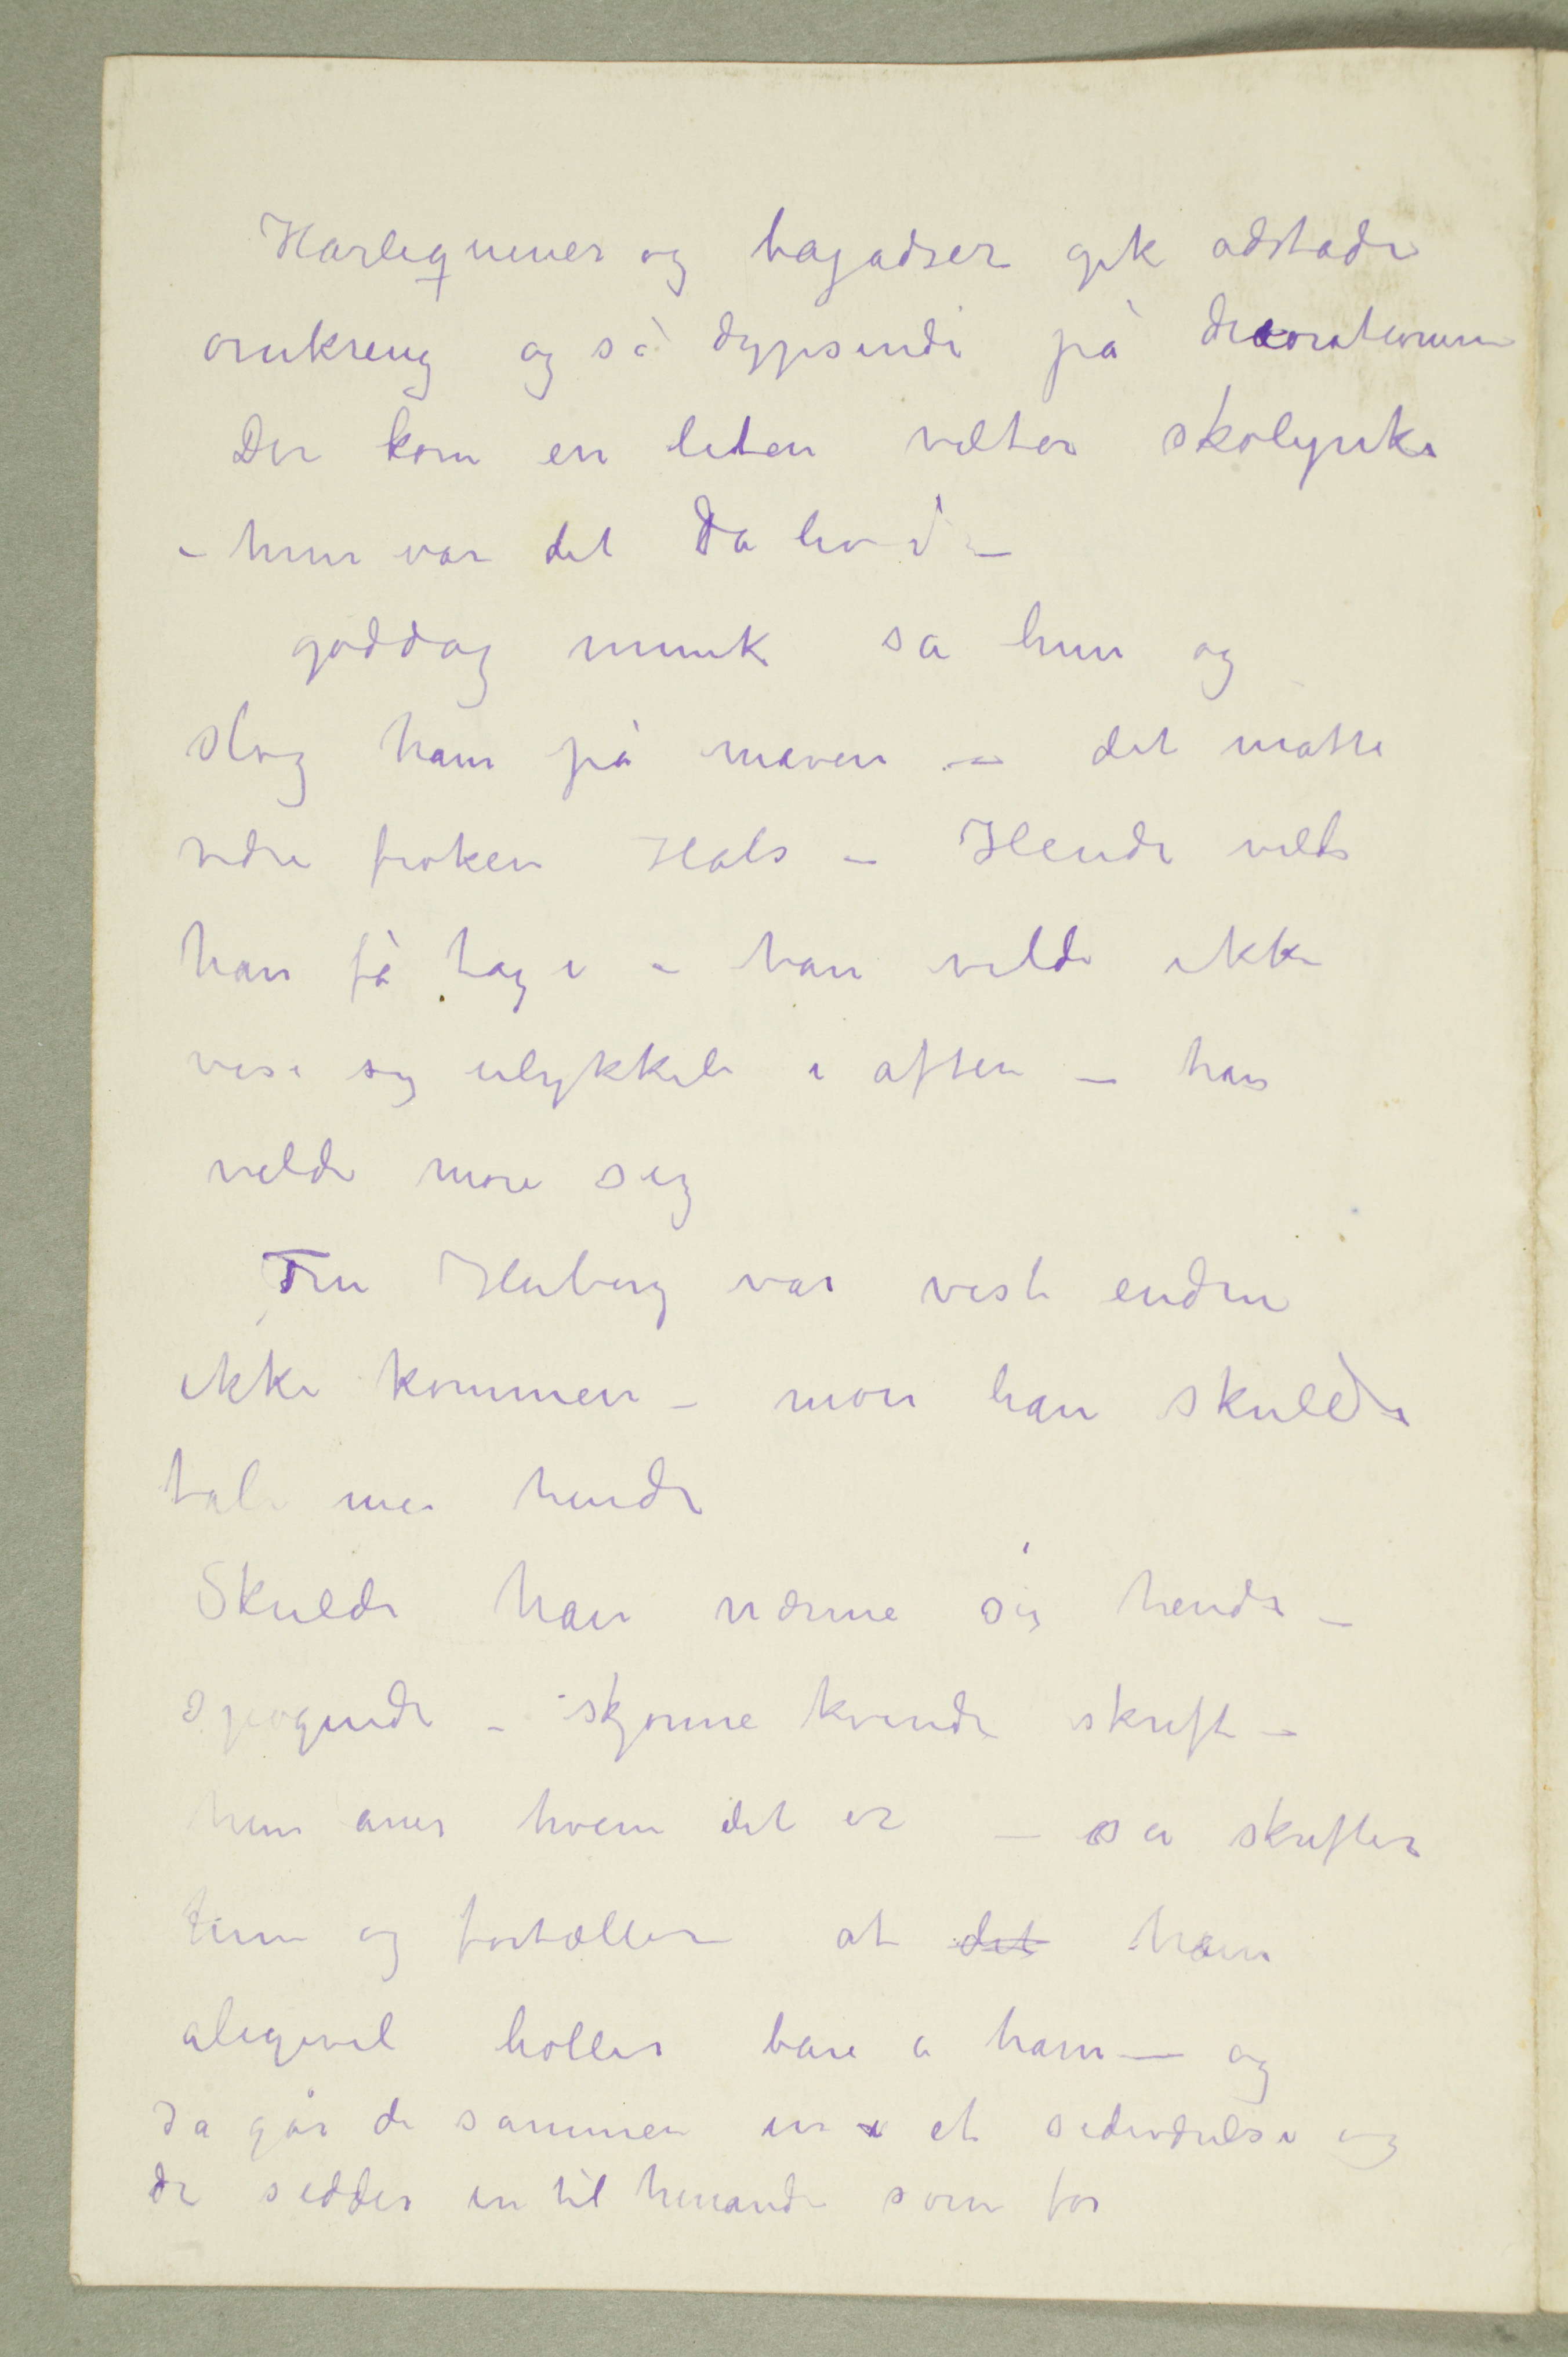 Harlequiner og bajadser gik adstadi
omkring og så dypsindi på dekorationerne
Der kom en liten vælter skolepike
– hun var det Da
goddag munk sa hun og
slog ham på maven – det måtte
være frøken Hals – Hende vilde
han få tag i – han vilde ikke
vise sig ulykkeli i aften – han
vilde more sig
Fru Heiberg var vist endnu
ikke kommen – mon han skulde
tale me hende
Skulde han nærme sig hende –
spøgende – skjønne kvinde skrift –
hun aner hvem det er – så skrifter
hun og fortæller at ~~det~~ hun
aligevel holder bare a ham – og
så går de sammen in i et sideværelse og
de sidder in til hinanden som før